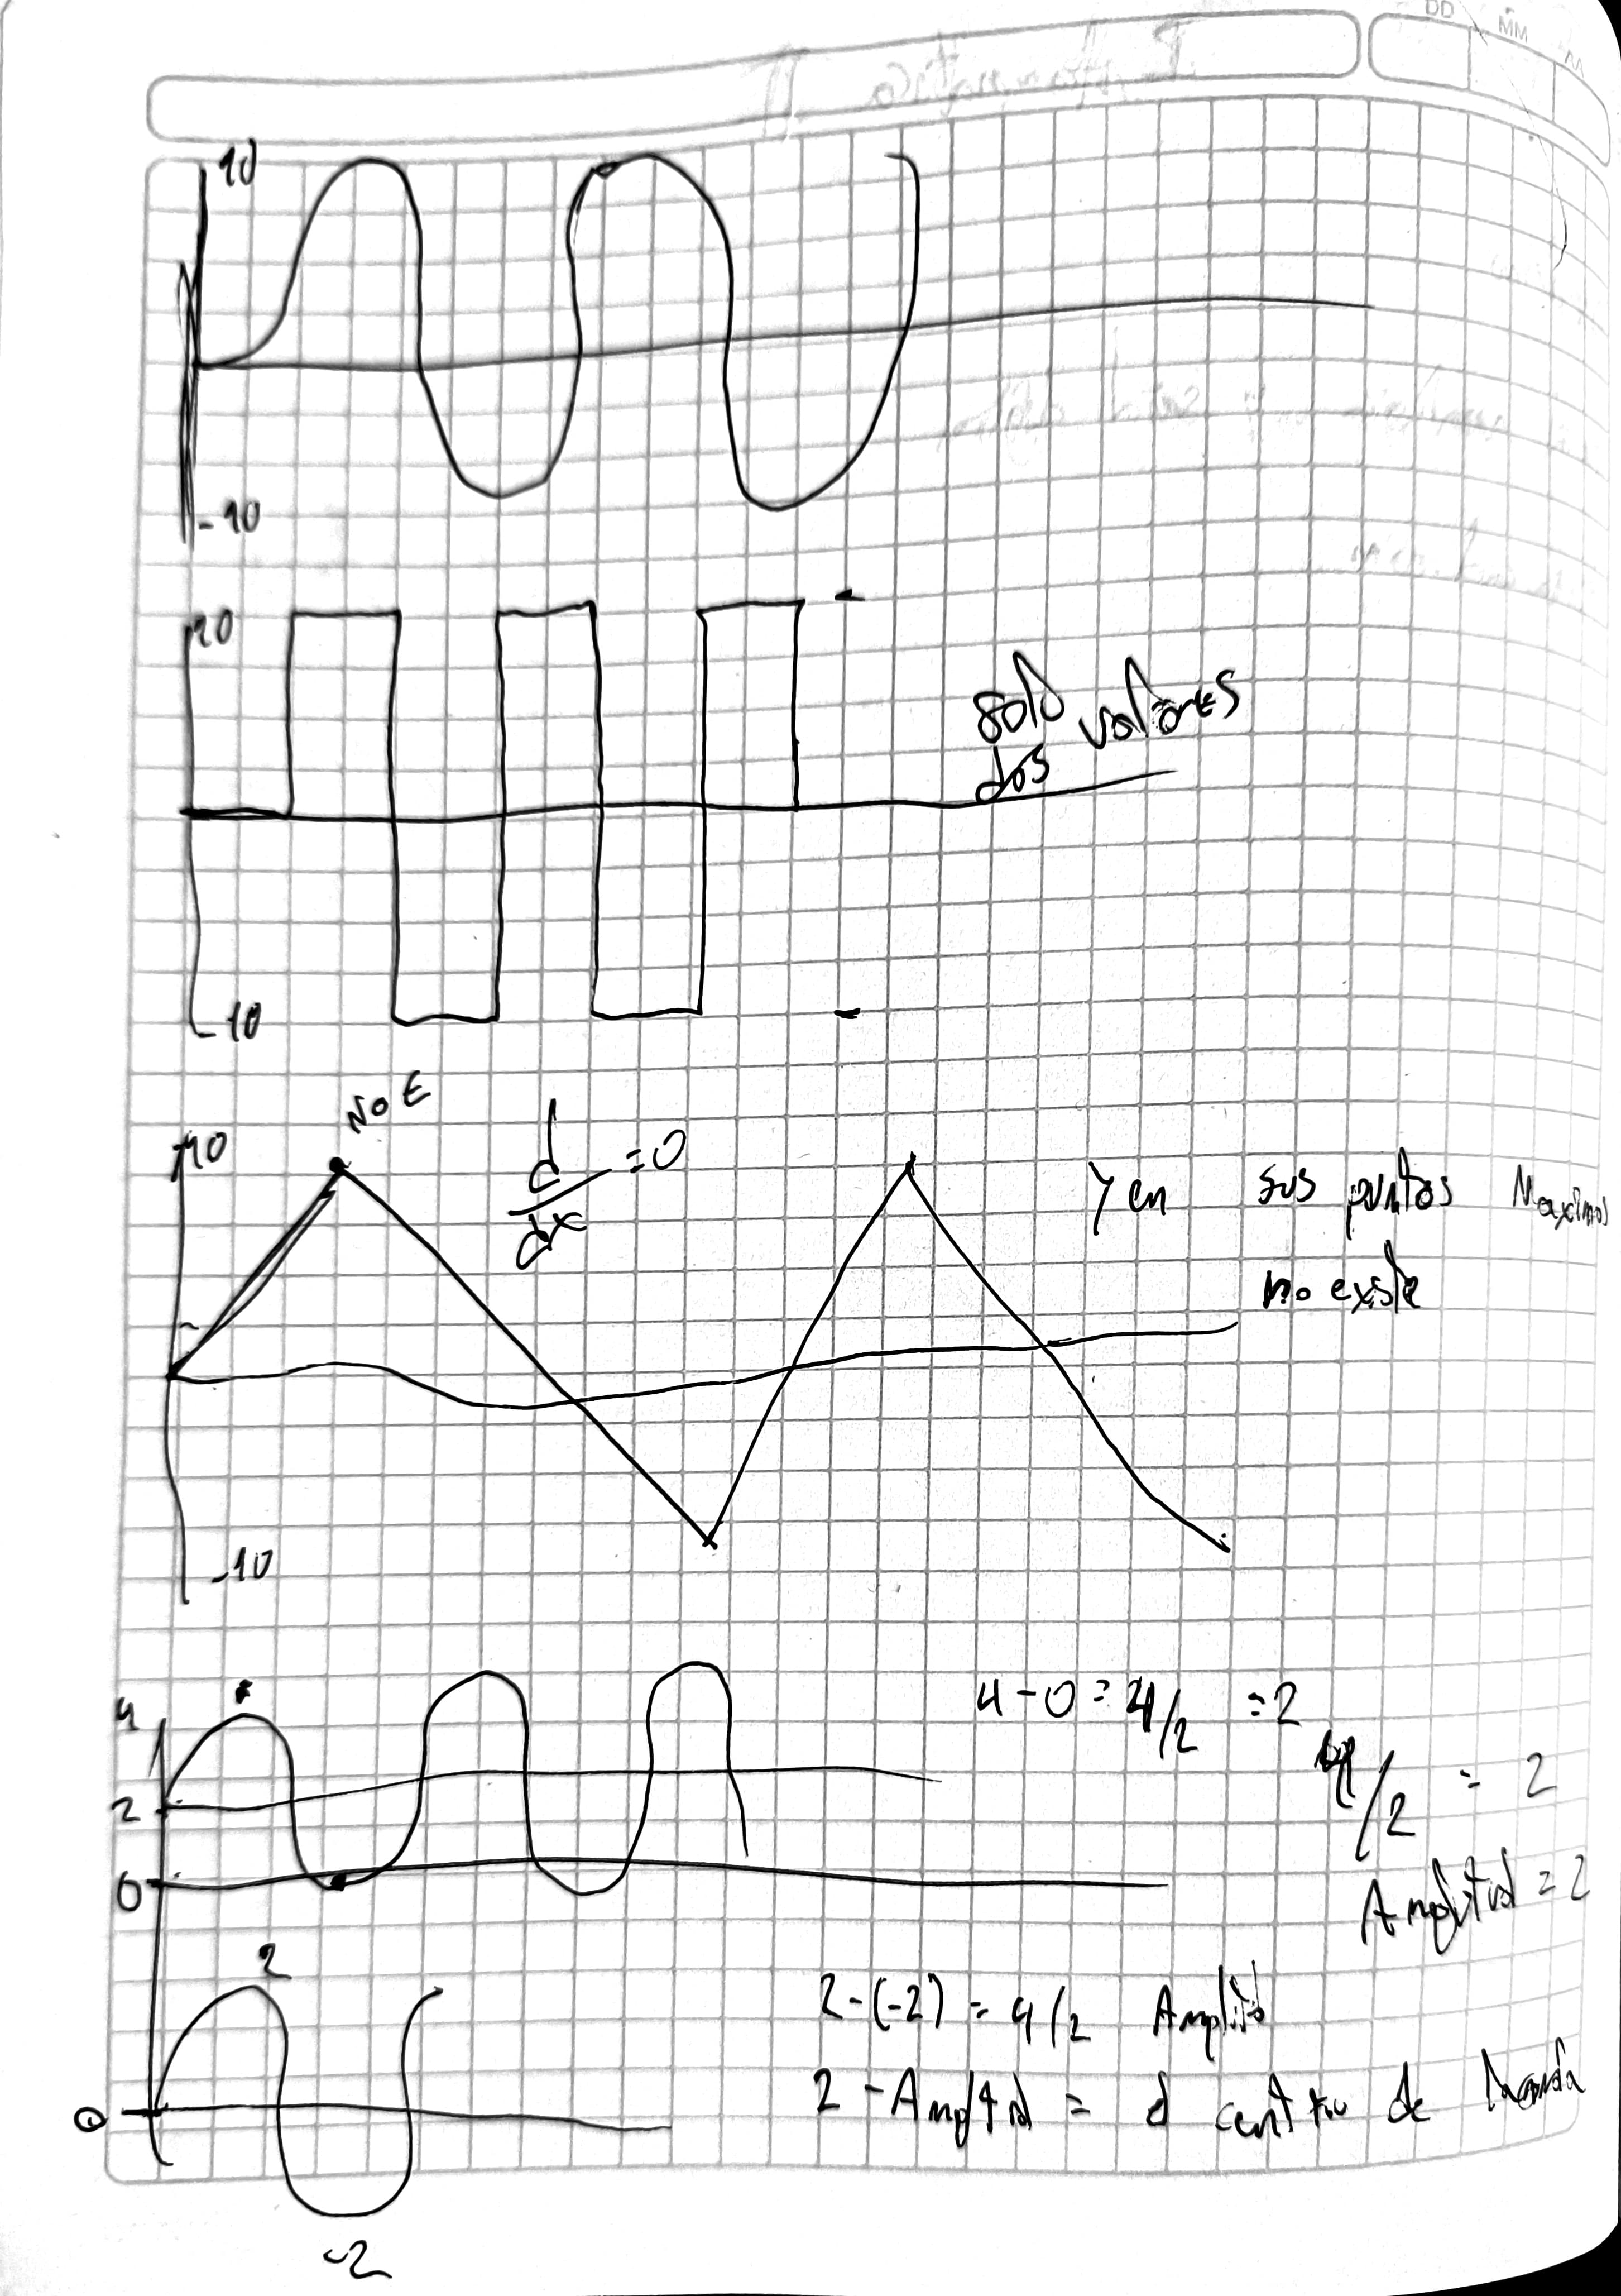 DD MM AA
10
-10
10
solo
dos valores
-10
NO E
10
d/dx =0
y en sus puntos Maximos
no existe
-10
4
4-0=4/2 =2
4/2 = 2
2
0
Amplitud = 2
2
2-(-2) = 4/2 Amplitud
2-Amplitud = el centro de la onda
0
-2